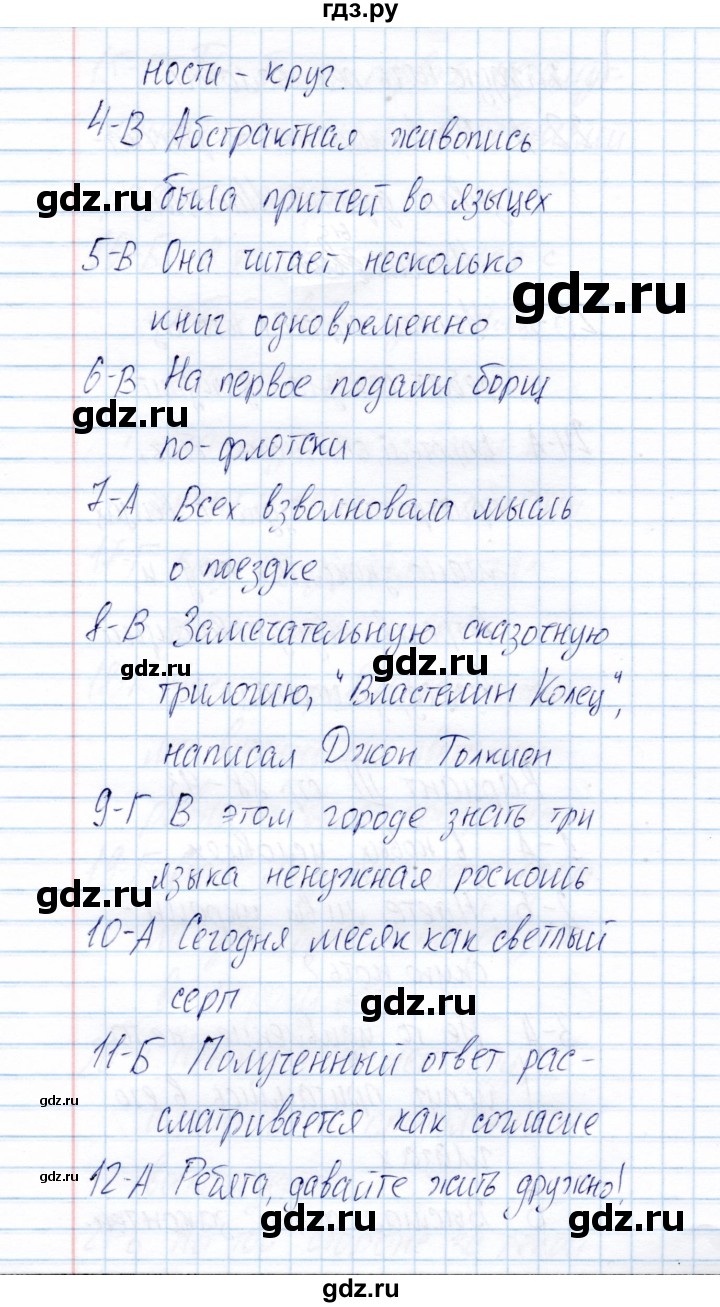 гдз.ру
ности - круг.
4-В Абстрактная живопись
gdz.ru
была притчей во языцех
5-В Она читает несколько
gdz.ru
книг одновременно
6-В На первое подали борщ
gdz.ru
по-флотски
7-А Всех взволновала мысль
о поездке
8-В Замечательную сказочную
gdz.ru gdz.ru
трилогию, "Властелин Колец",
написал Джон Толкиен
9-Г В этом городе знать три
gdz.ru
языка ненужная роскошь
10-А Сегодня месяк как светлый
gdz.ru
серп
11-Б Полученный ответ рас-
gdz.ru
сматривается как согласие
gdz.ru
12-А Ребята, давайте жить дружно!
gdz.ru gdz.ru
gdz.ru